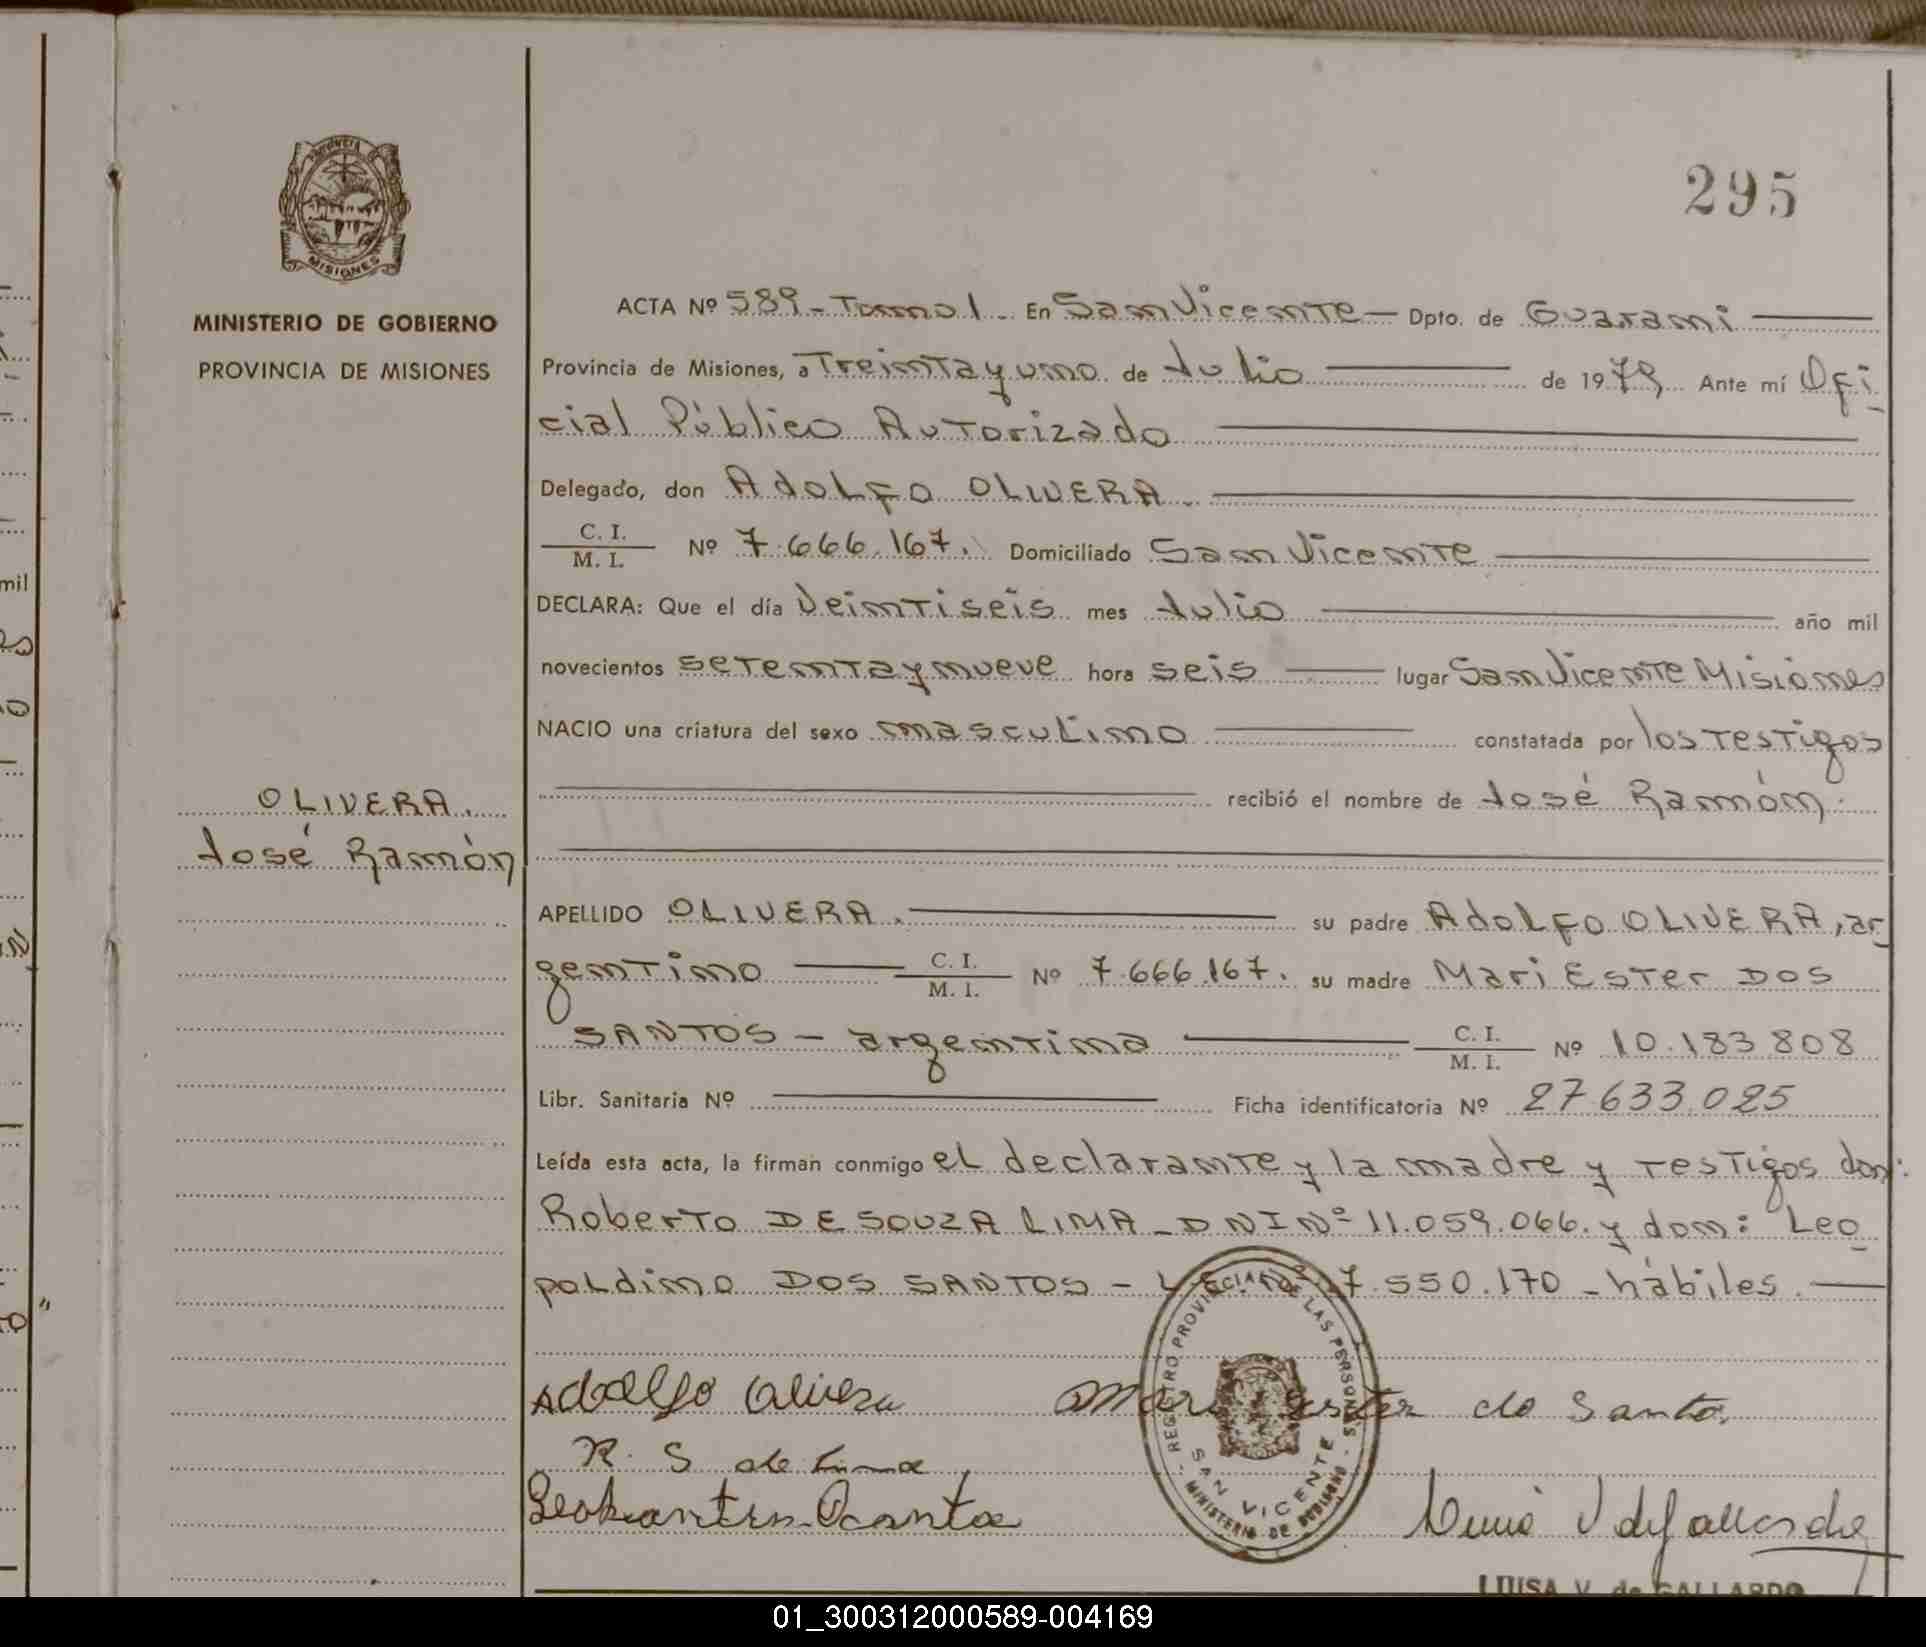 295
MISIONES
MINISTERIO DE GOBIERNO
PROVINCIA DE MISIONES
OLIVERA.
José Ramón
ACTA Nº 589 - Tomo I - En San Vicente — Dpto. de Guaraní —
Provincia de Misiones, a Treinta y uno de Julio — de 1979 Ante mí Ofi-
cial Público Autorizado —
Delegado, don Adolfo OLIVERA. —
C. I.
M. I. Nº 7.666.167. Domiciliado San Vicente —
DECLARA: Que el día Veintiseis mes Julio — año mil
novecientos setenta y nueve hora seis — lugar San Vicente Misiones
NACIO una criatura del sexo masculino — constatada por los testigos
— recibió el nombre de José Ramón.
APELLIDO OLIVERA. — su padre Adolfo OLIVERA, ar-
gentino — C. I.
M. I. Nº 7.666.167. su madre Mari Ester DOS
SANTOS - argentina — C. I.
M. I. Nº 10.183.808
Libr. Sanitaria Nº — Ficha identificatoria Nº 27.633.025
Leída esta acta, la firman conmigo el declarante y la madre y testigos don:
Roberto DE SOUZA LIMA - DNI Nº 11.059.066. y don: Leo-
poldino DOS SANTOS - L.E. Nº 7.550.170 - hábiles. —
Adolfo Olivera Mari Ester do Santo.
R. S de Lima
REGISTRO PROVINCIAL DE LAS PERSONAS
SAN VICENTE
MINISTERIO DE GOBIERNO
LUISA V. de GALLARDO
mil
01_300312000589-004169